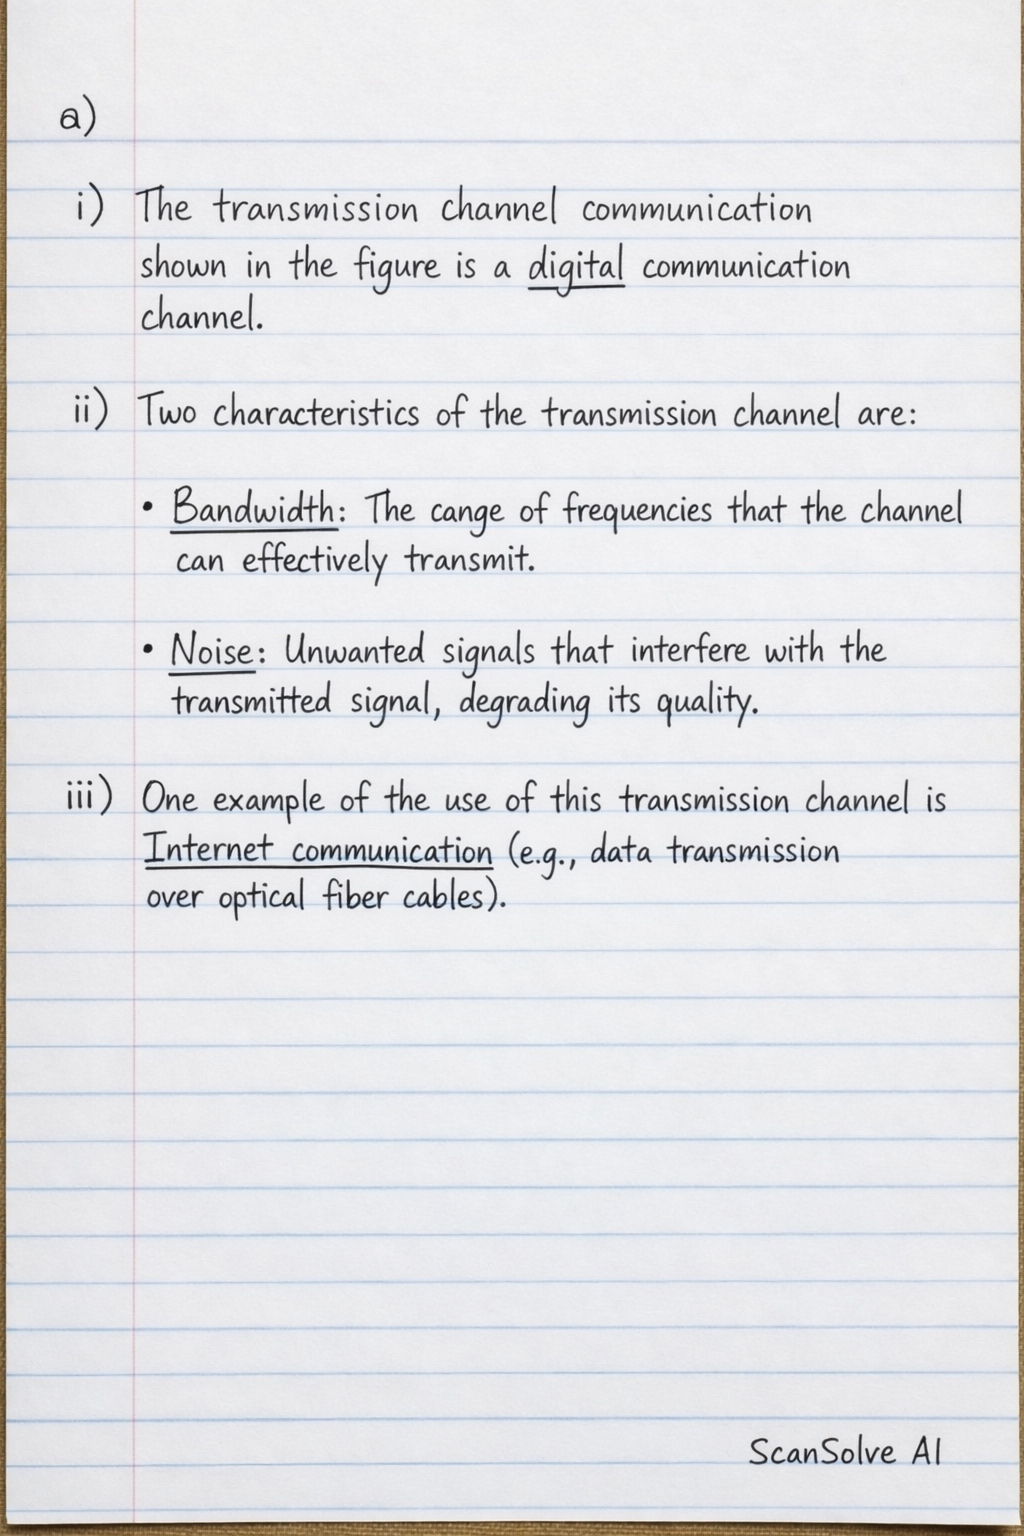 a)
i) The transmission channel communication
shown in the figure is a digital communication
channel.
ii) Two characteristics of the transmission channel are:
• Bandwidth: The cange of frequencies that the channel
can effectively transmit.
• Noise: Unwanted signals that interfere with the
transmitted signal, degrading its quality.
iii) One example of the use of this transmission channel is
Internet communication (e.g., data transmission
over optical fiber cables).
ScanSolve AI